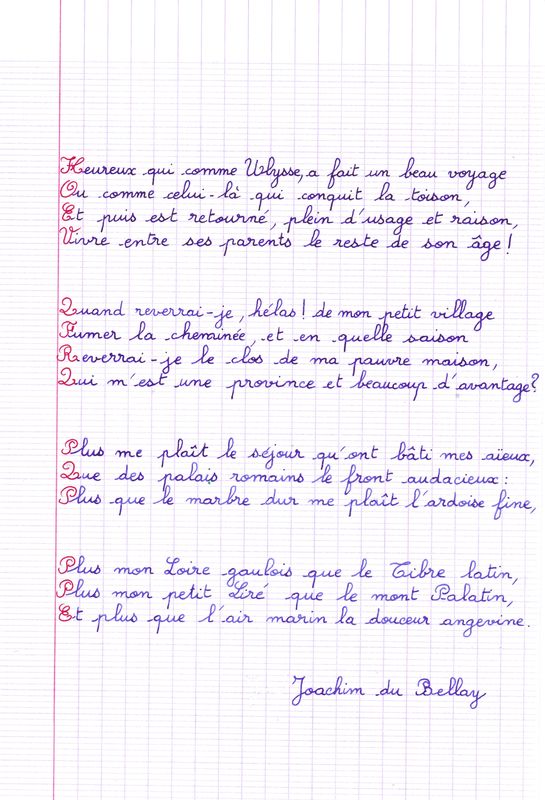 Heureux qui comme Ulysse, a fait un beau voyage
Ou comme celui-là qui conquit la toison,
Et puis est retourné, plein d'usage et raison,
Vivre entre ses parents le reste de son âge !
Quand reverrai-je, hélas ! de mon petit village
Fumer la cheminée, et en quelle saison
Reverrai-je le clos de ma pauvre maison,
Qui m'est une province et beaucoup d'avantage ?
Plus me plaît le séjour qu'ont bâti mes aïeux,
Que des palais romains le front audacieux :
Plus que le marbre dur me plaît l'ardoise fine,
Plus mon Loire gaulois que le Tibre latin,
Plus mon petit Liré que le mont Palatin,
Et plus que l'air marin la douceur angevine.
Joachim du Bellay